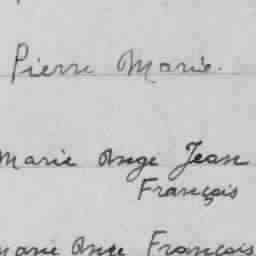 Pierre Marie.
Marie Ange Jean
François
Marie Ange François